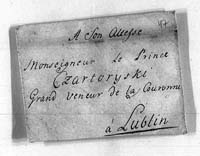 A Son Altesse
Monseigneur Le Prince
Czartoryski
Grand Veneur de La Couronne
à Lublin